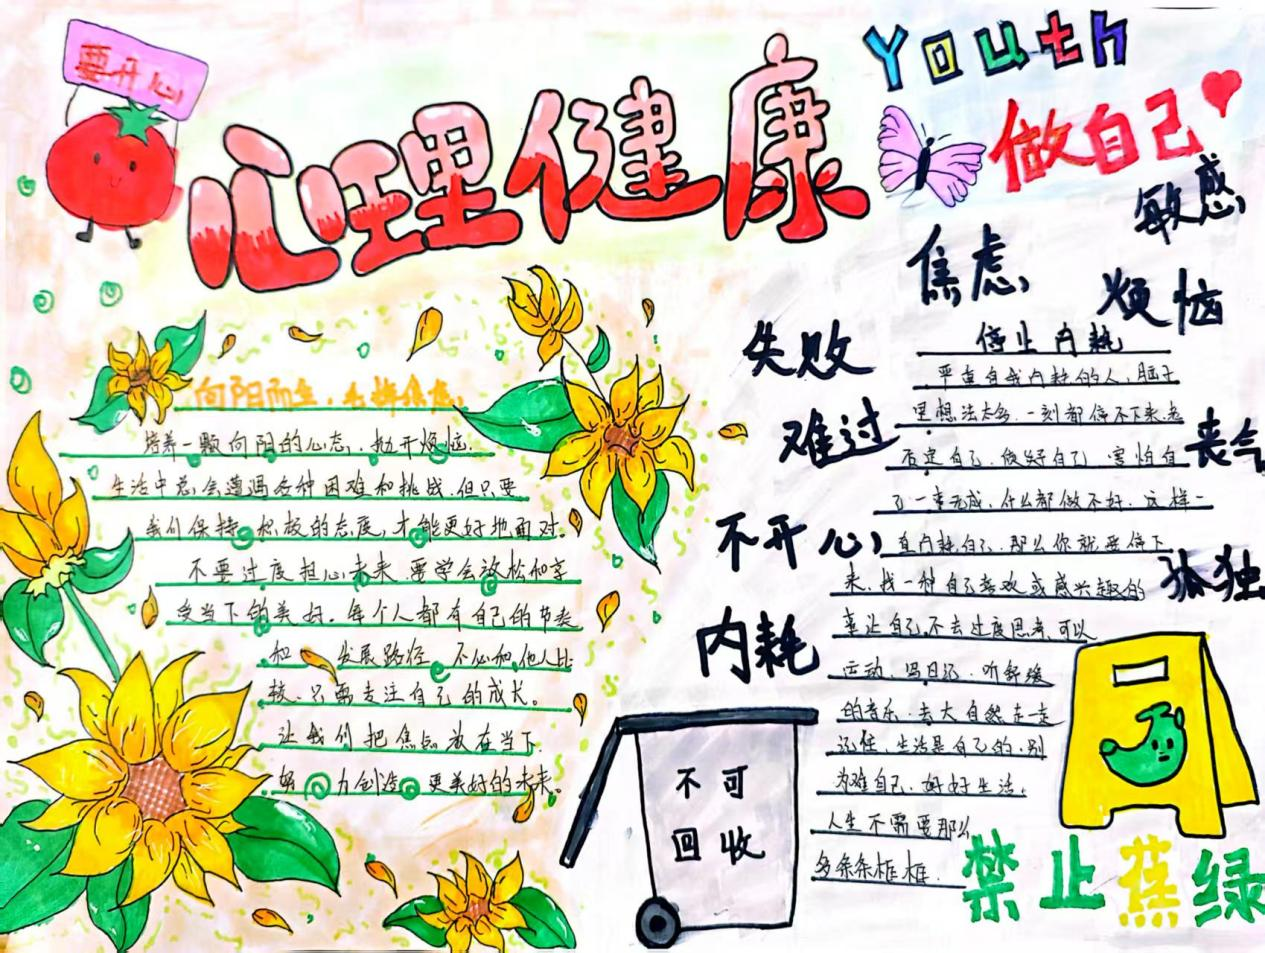 要开心
心理健康
Youth
做自己
敏感
焦虑
烦恼
失败
难过
丧气
不开心
孤独
内耗
向阳而生，未择焦虑
培养一颗向阳的心态，抛开烦恼。
生活中总会遭遇各种困难和挑战，但只要
我们保持积极的态度，才能更好地面对。
不要过度担心未来，要学会放松和享
受当下的美好。每个人都有自己的节奏
和发展路径，不必和他人比
较，只需专注自己的成长。
让我们把焦点放在当下，
努力创造更美好的未来。
停止内耗
严重自我内耗的人，脑子
里想法太多，一刻都停不下来，总
否定自己，做好自己，害怕自
己一事无成，什么都做不好，这样一
直内耗自己，那么你就要停下
来，找一种自己喜欢或感兴趣的
事让自己不去过度思考，可以
运动，写日记，听舒缓
的音乐，去大自然走一走
记住，生活是自己的，别
为难自己，好好生活，
人生不需要那么
多条条框框。
不可
回收
禁止蕉绿